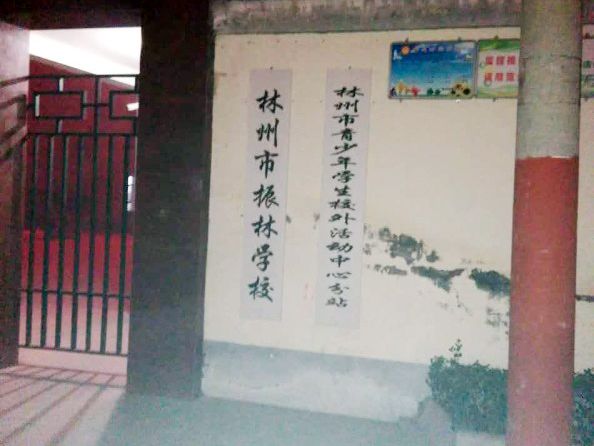 林州市振林学校
林州市青少年学生校外活动中心分站